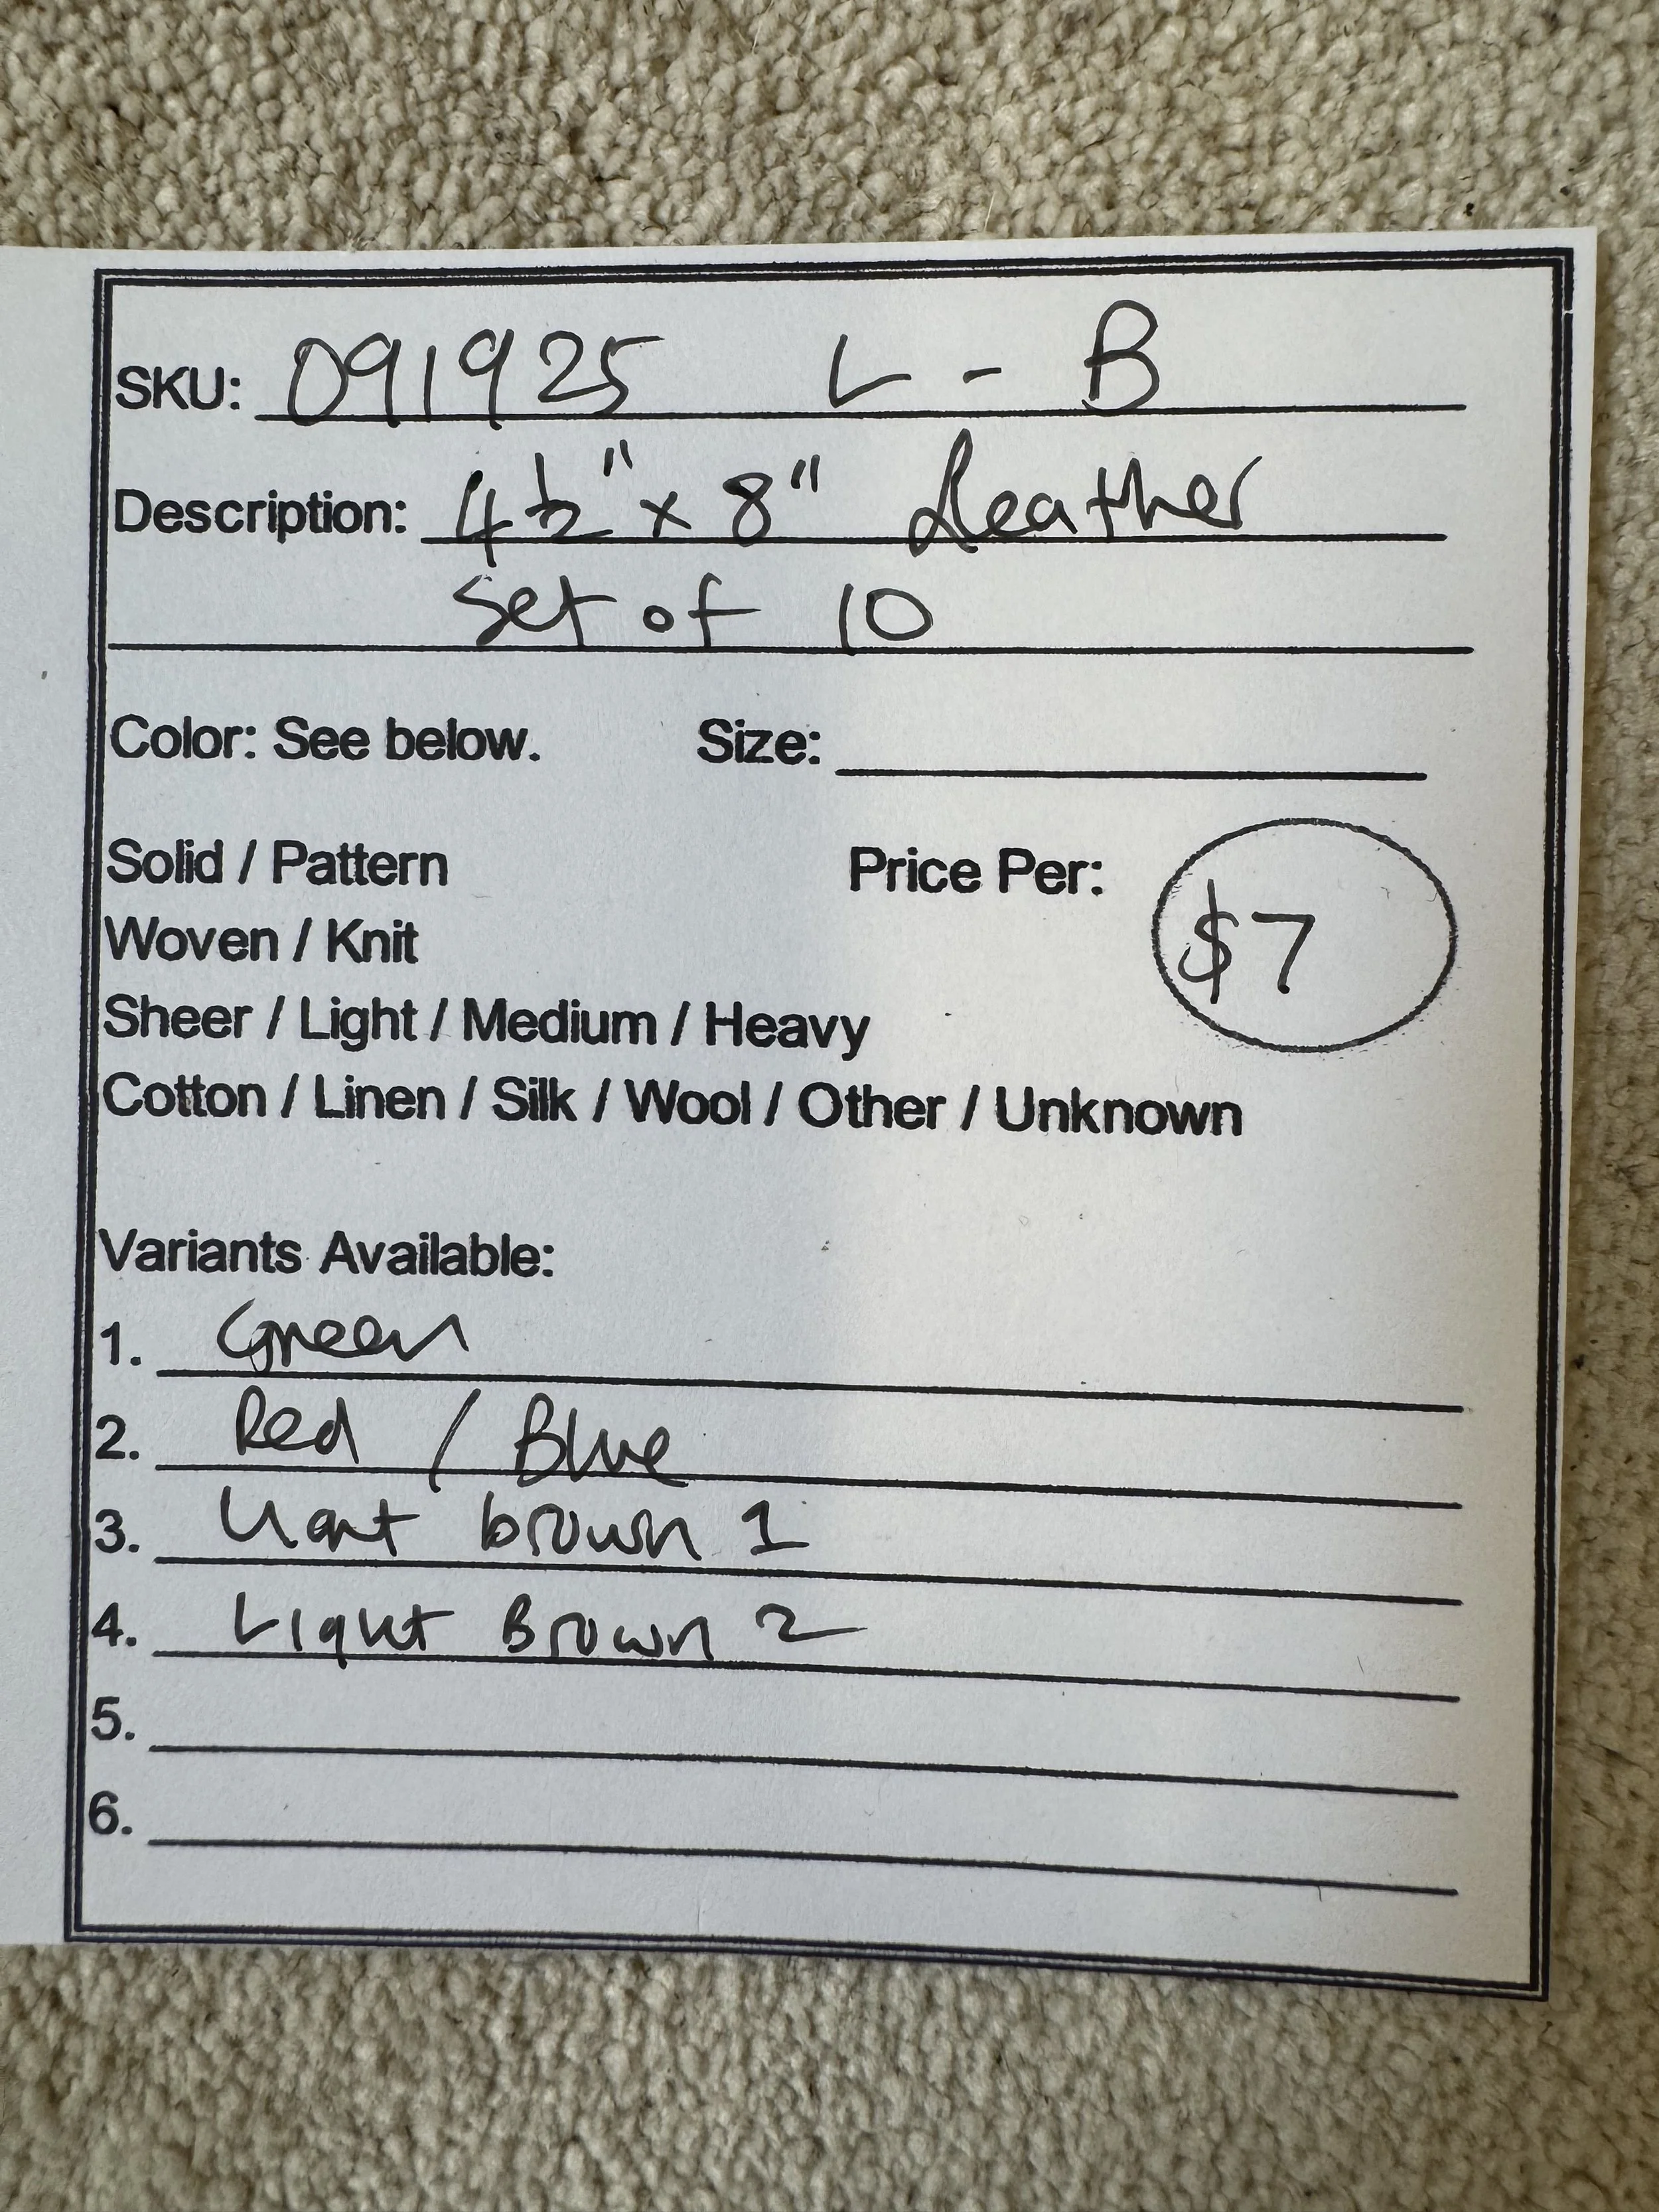 SKU: 091925 L - B
Description: 4½" x 8" Leather
set of 10
Color: See below. Size:
Solid / Pattern Price Per: $7
Woven / Knit
Sheer / Light / Medium / Heavy
Cotton / Linen / Silk / Wool / Other / Unknown
Variants Available:
1. Green
2. Red / Blue
3. Light brown 1
4. Light Brown 2
5.
6.